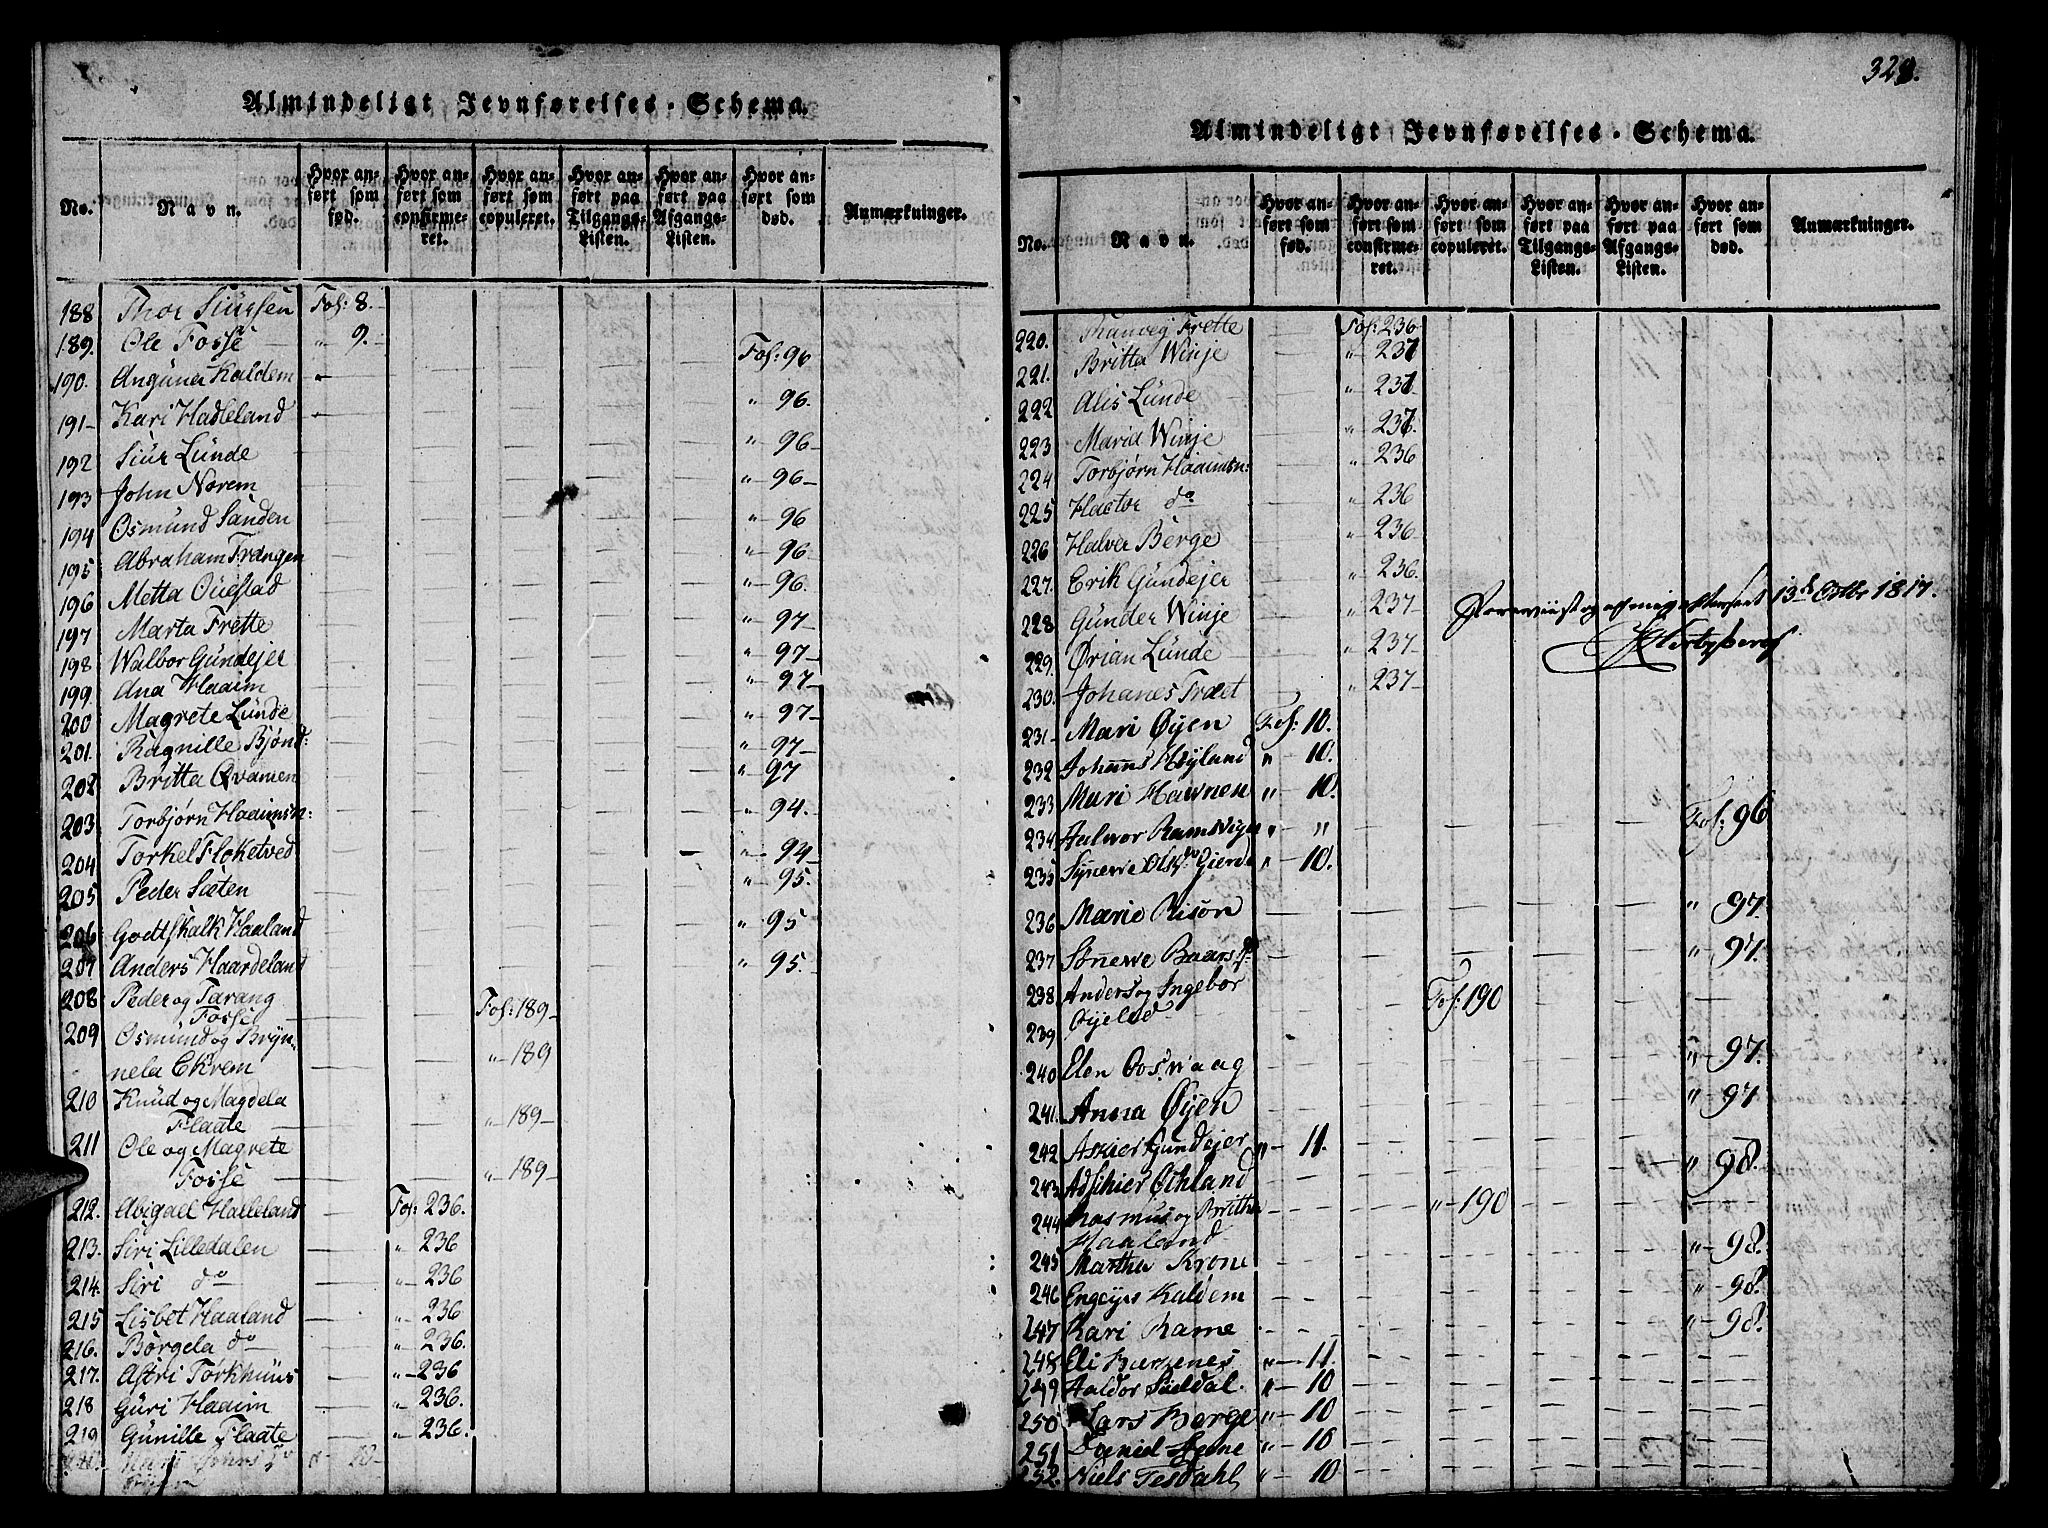 Almindeligt Jevnførelses-Schema.
No. Navn. Hvor anført som fød. Hvor anført som confirmeret. Hvor anført som copuleret. Hvor anført paa Tilgangs-Listen. Hvor anført paa Afgangs-Listen. Hvor anført som død. Anmærkninger.
188 Thor Siursen Fol: 8.
189. Ole Fosse " 9.
190. Anguna Kaldem Fol: 96
191 Kari Hadleland " 96.
192 Siur Lunde " 96
193 John Norem " 96
194 Osmund Sanden " 96
195 Abraham Frangen " 96.
196 Metta Questad " 96.
197 Marta Frette " 97
198 Walbor Gundejer " 97
199. Ana Haaim " 97
200 Magrete Lunde " 97
201. Ragnille Bjønd: " 97
202 Britta Qvamen " 97
203 Torbjørn Haaimsn: " 94.
204 Torkel Floketved " 94
205 Peder Sæten " 95.
206 Godtskalk Haaland " 95
207 Anders Haardeland " 95.
208 Peder og Tarang Fol: 189
Fosse
209 Osmund og Bryn-
nela Ekrem " 189
210 Knud og Magdela
Flaate " 189
211 Ole og Magrete
Fosse " 189
212. Abigael Halleland Fol: 236.
213. Siri Lilledalen " 236
214. Siri do " 236
215 Lisbet Haaland " 236
216. Børgela do " 236.
217. Astri Torkhuus " 236
218 Guri Haaim " 236.
219 Gunille Flaate " 236.
328.
Almindeligt Jevnførelses-Schema.
No. Navn. Hvor anført som fød. Hvor anført som confirmeret. Hvor anført som copuleret. Hvor anført paa Tilgangs-Listen. Hvor anført paa Afgangs-Listen. Hvor anført som død. Anmærkninger.
220. Ranveg Frette Fol: 236
221. Britta Winje " 237
222 Alis Lunde " 237
223 Maria Winje " 237
224 Torbjørn Haaimsn: " 236
225 Hactor do " 236
226 Halver Berge " 236
227. Erik Gundejer " 236.
228 Gunder Winje " 237
229. Ørian Lunde " 237
230. Johanes Træt " 237
13de Octbr 1817.
231 Mari Øyen Fol: 10.
232 Johans Høyland " 10.
233 Mari Hawnen " 10.
234 Halvor Ramsvigen " " Fol: 96
235 Synewe Olsdr Gierde " 10.
236 Marie Risøn " 97.
237 Sønewe Baarsdr " 97.
238. Anders og Ingebor Fol: 190
239 Øyeled
240 Elen Goswaag " 97.
241. Anna Øyen " 97
242 Askier Gundejer " 11.
243 Adsihier Østhland " 98.
244 Rasmus og Britha " 190
Haaland
245 Martha Krone " 98.
246 Engeyer Kaldem " 98.
247 Kari Rame " 98.
248 Eli Barkenes " 11.
249 Haldor Suldal. " 10
250 Lars Berge " 10
251 Daniel Lone " 10
252. Niels Tesdahl " 10